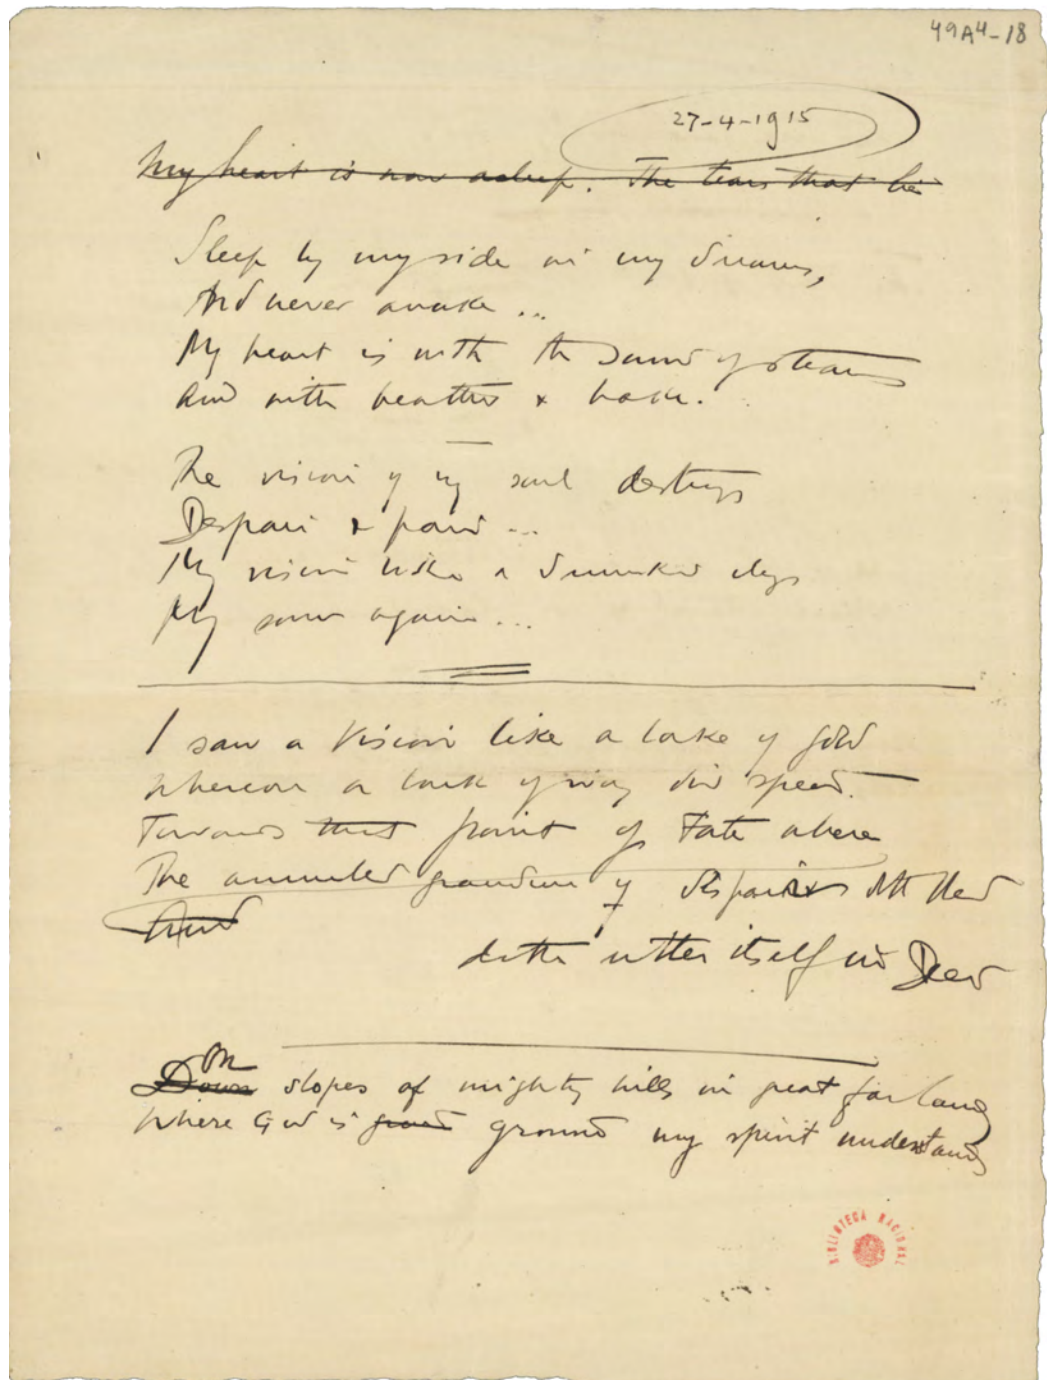 49A4-18
27-4-1915
My heart is now asleep. The tears that lie
Sleep by my side in my dreams,
And never awake...
My heart is with the sound of streams
And with heather & brake.
The vision of my soul destroys
Despair & pain...
My vision like a drunkard
My soul again...
I saw a Vision like a lake of gold
Whereon a bark of ivory did speed.
Towards that point of Fate where
The annulled grandeur of despair
And
doth utter itself in Deed
On
Down slopes of mighty hills in great far lands
Where God is ground my spirit understands
BIBLIOTECA NACIONAL